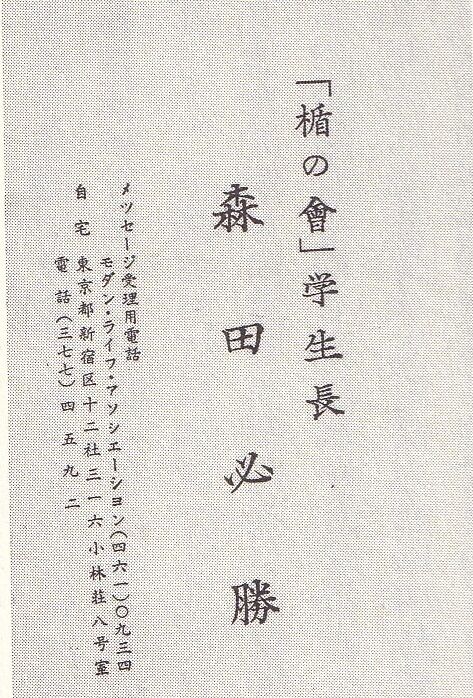 「楯の會」学生長
森田必勝
メツセージ受理用電話
モダン・ライフ・アソシエーシヨン(四六一)〇九三四
自宅 東京都新宿区十二社三一六小林荘八号室
電話(三七七)四五九二